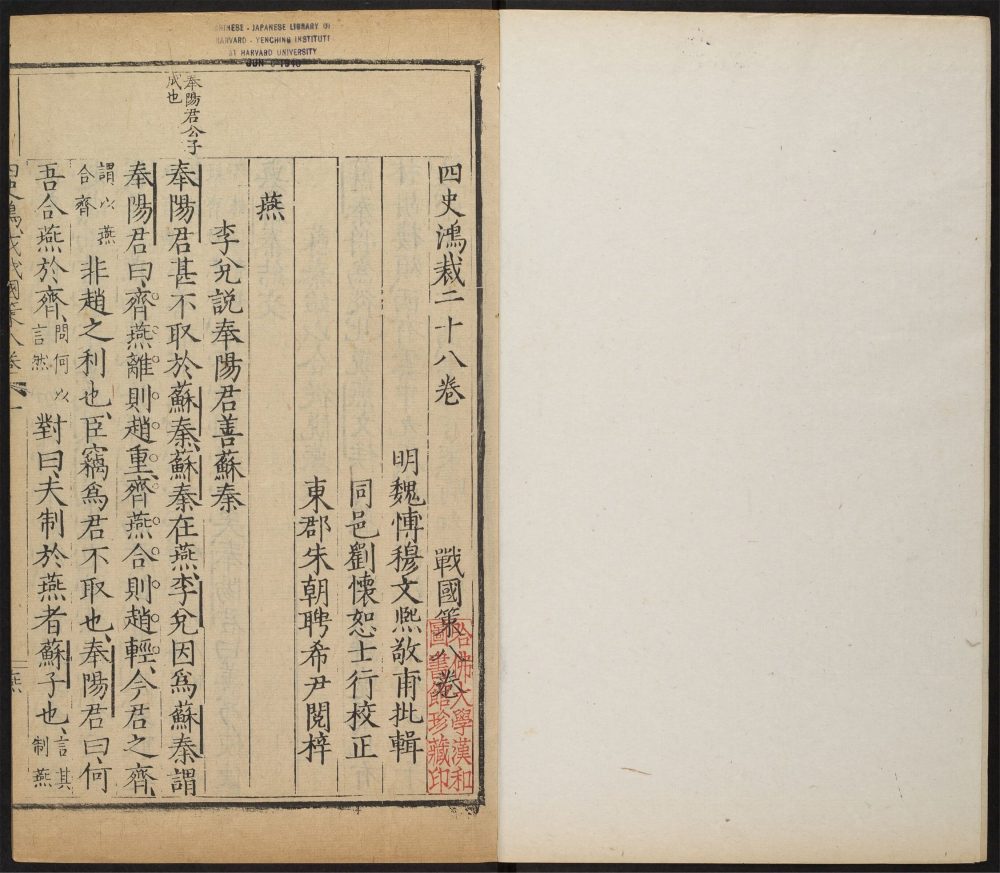 CHINESE - JAPANESE LIBRARY OF
HARVARD - YENCHING INSTITUTE
AT HARVARD UNIVERSITY
JUN 6 1940
奉陽君公子
成也
四史鴻裁二十八卷 戰國策八卷
明魏博穆文熙敬甫批輯
同邑劉懷恕士行校正
東郡朱朝聘希尹閱梓
燕
李兌說奉陽君善蘇秦
奉陽君甚不取於蘇秦、蘇秦在燕、李兌因爲蘇秦謂
奉陽君曰、齊燕離則趙重、齊燕合則趙輕、今君之齊、
謂以燕
合齊
非趙之利也、臣竊爲君不取也、奉陽君曰、何
吾合燕於齊、
問何以
言然
對曰、夫制於燕者蘇子也、
言其
制燕
哈佛大學漢和
圖書館珍藏印